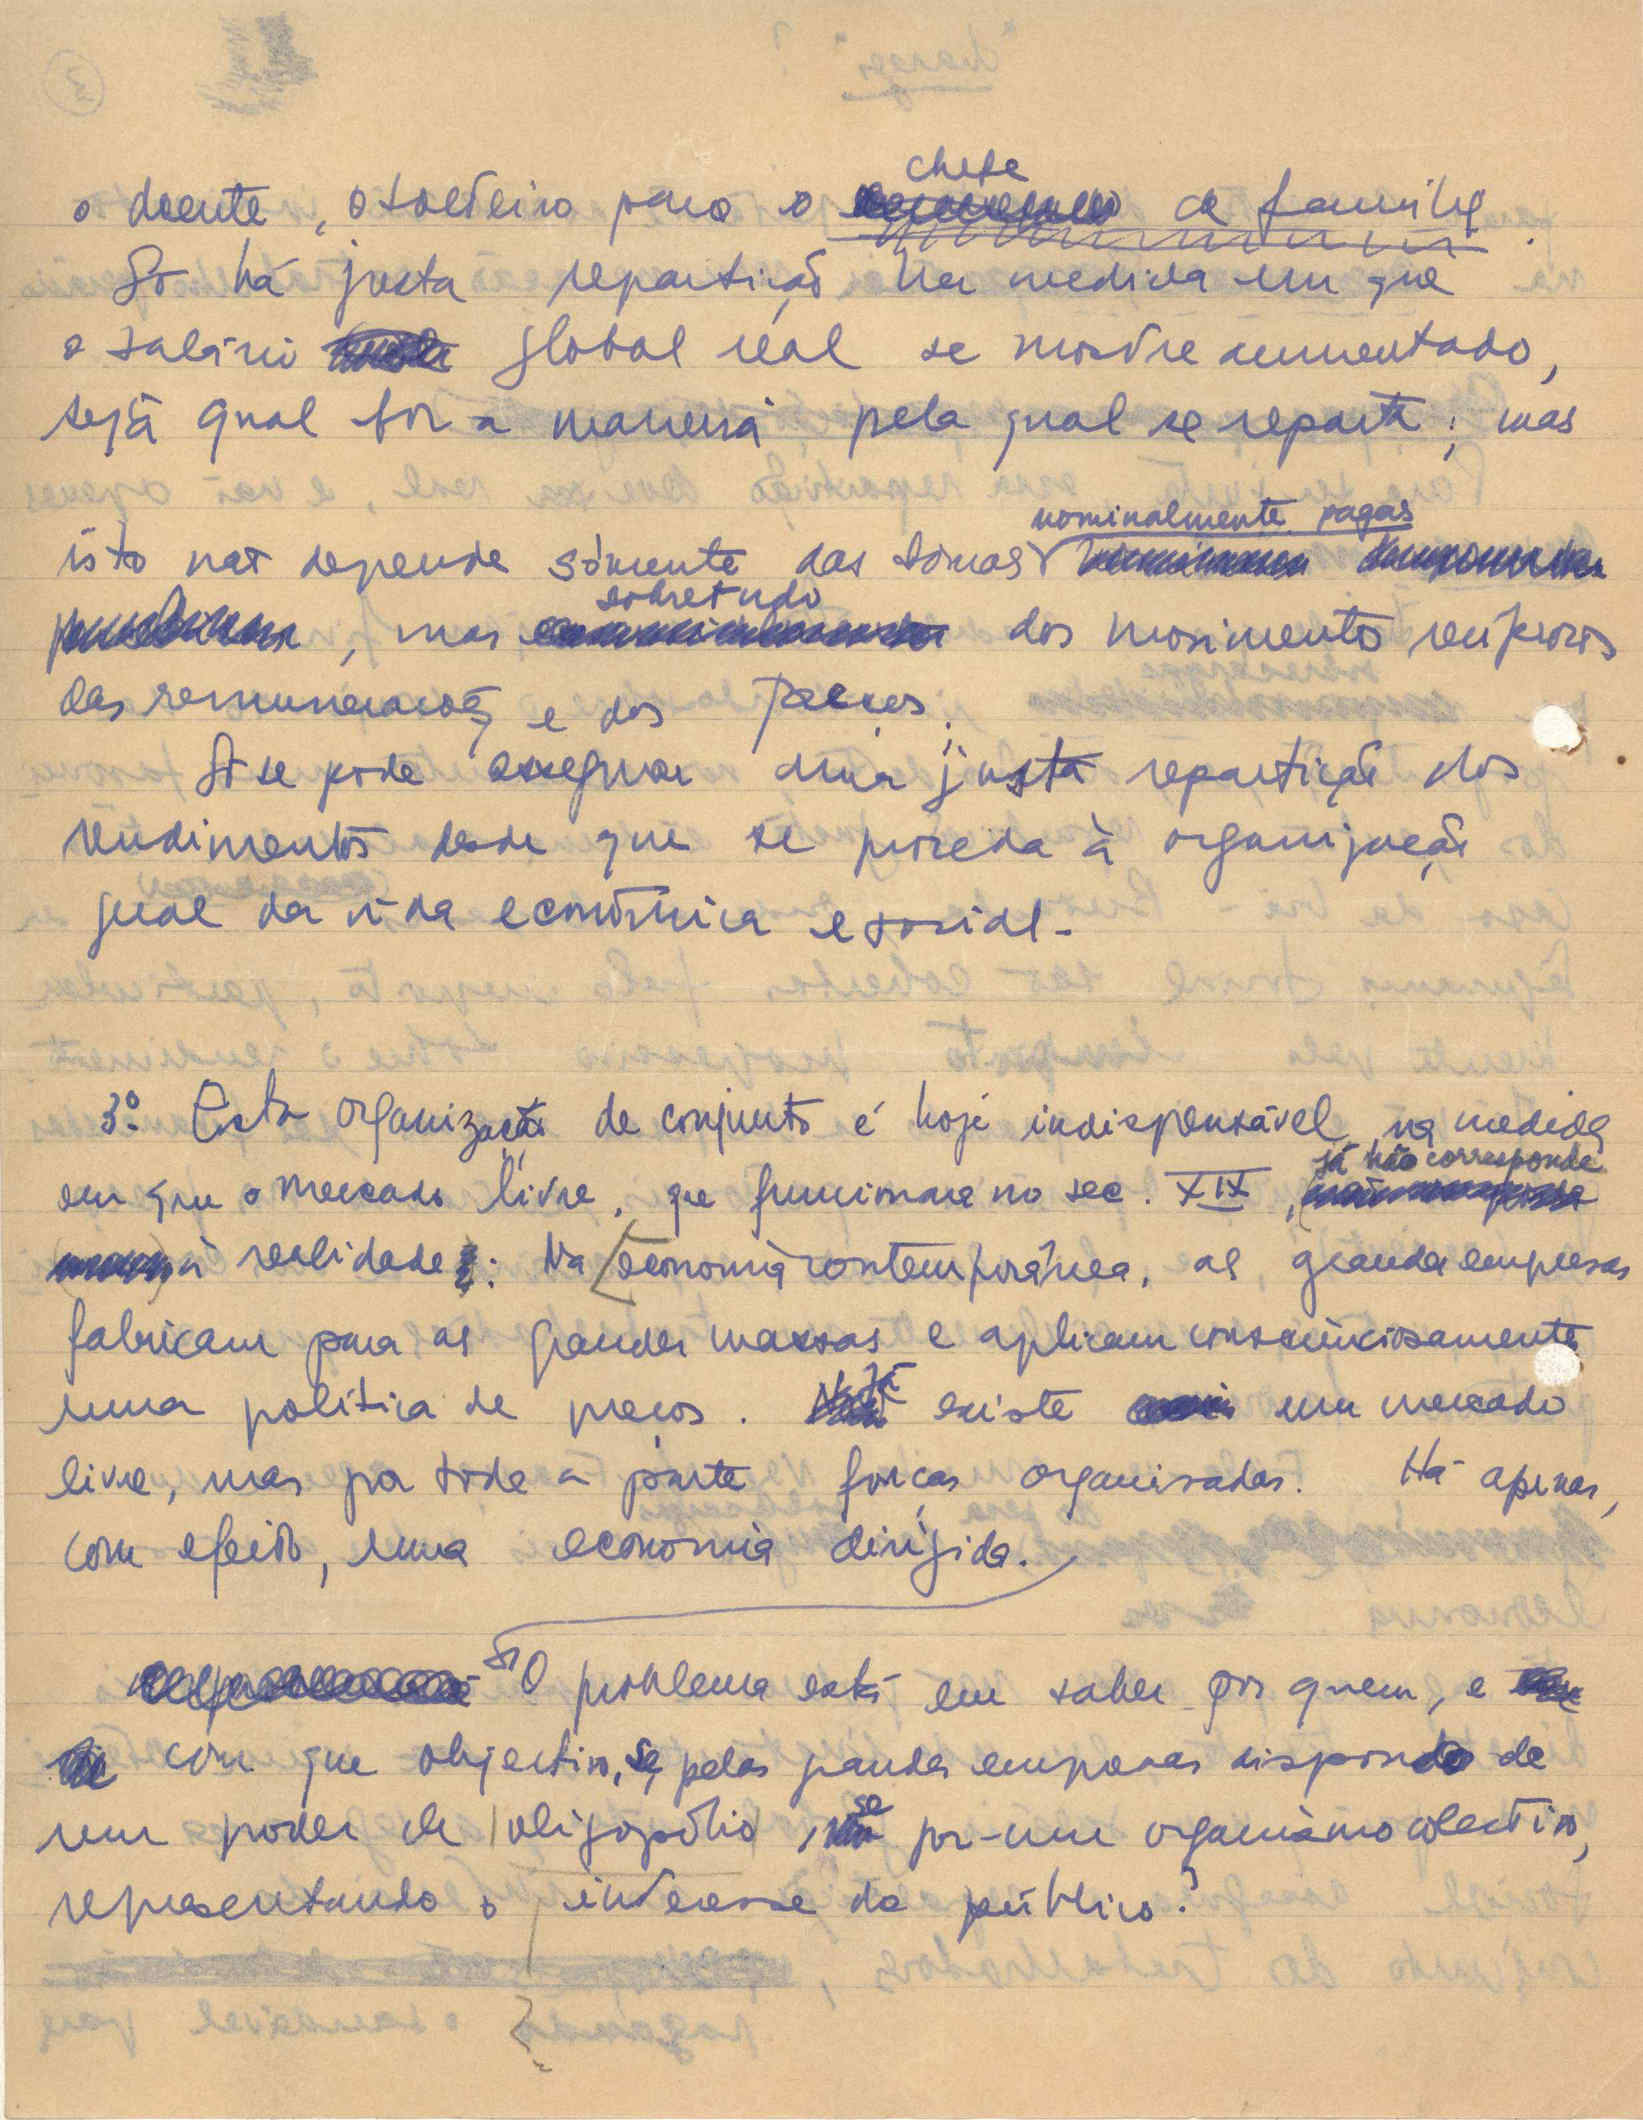 o doente, o solteiro para o chefe de família.
Só há justa repartição na medida em que
o salário global real se mostre aumentado,
seja qual fôr a maneira pela qual se reparta; mas
isto não depende sòmente das sômas nominalmente pagas
, mas sobretudo dos movimentos recíprocos
das remunerações e dos preços.
Só se pode assegurar uma justa repartição dos
rendimentos desde que se proceda à organização
geral da vida económica e social.
3º Esta organização de conjunto é hoje indispensável na medida
em que o mercado livre, que funcionara no sec. XIX, já não corresponde
à realidade: Na economia contemporânea, as grandes empresas
fabricam para as grandes massas e aplicam conscienciosamente
uma política de preços. Já existe um mercado
livre, mas por toda a parte forças organisadas. Há apenas,
com efeito, uma economia dirigida.
O problema está em saber por quem, e
com que objectivo, se pelas grandes empresas dispondo de
um poder de oligopólio, se por um organismo colectivo,
representando o interesse do público?